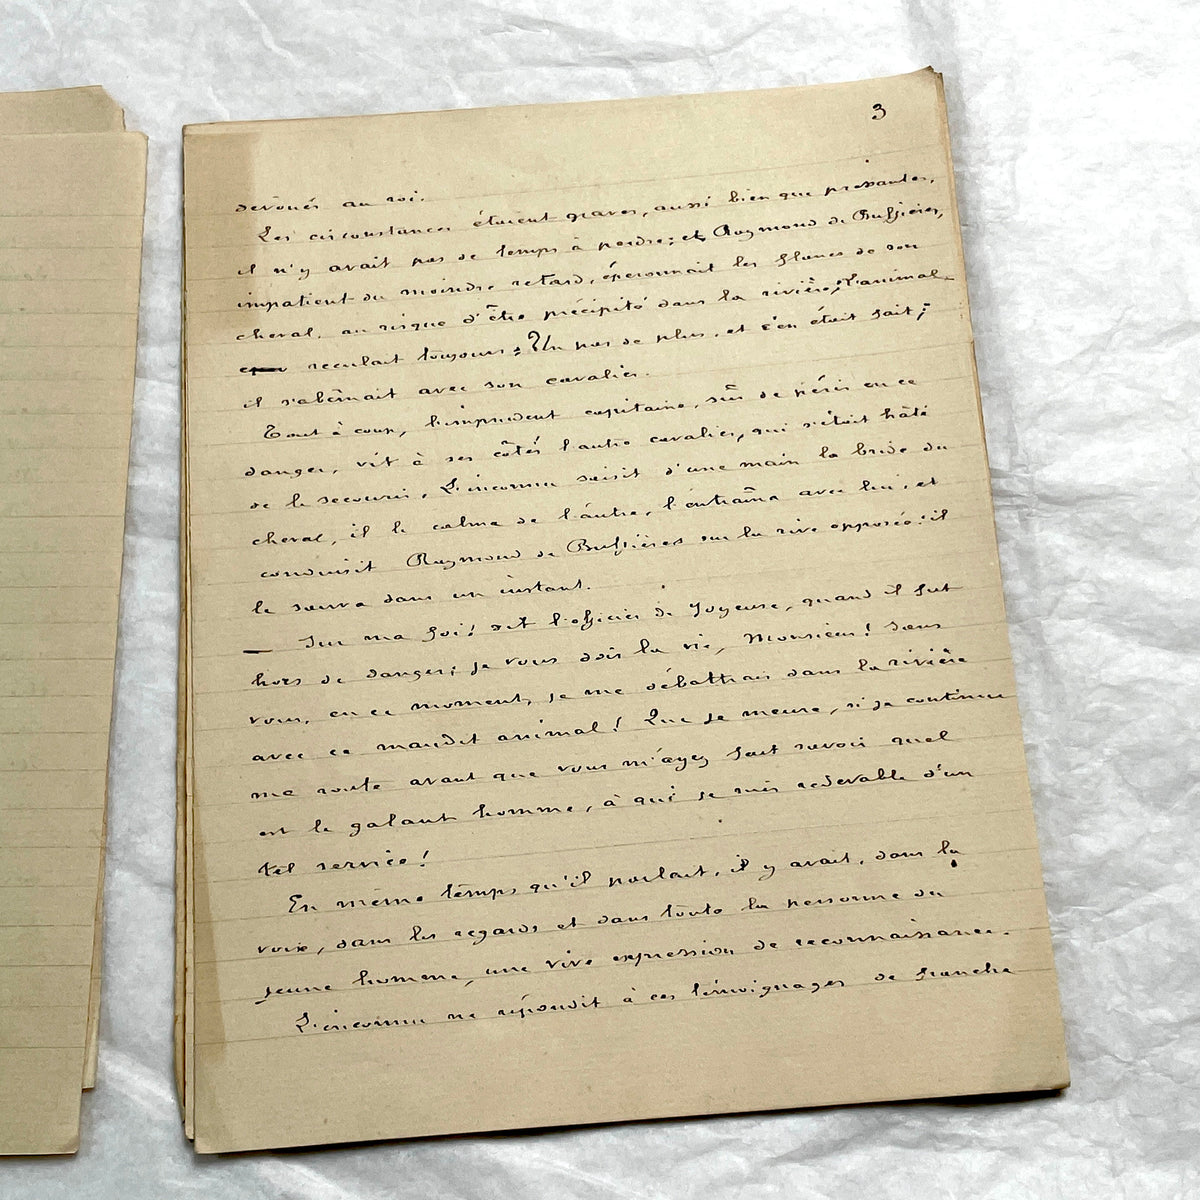 3
dévoués au roi.
Les circonstances étaient graves, aussi bien que pressantes,
il n'y avait pas de temps à perdre; et Raymond de Bussières,
impatient du moindre retard, éperonnait les flancs de son
cheval, au risque d'être précipité dans la rivière; l'animal
reculait toujours: Un pas de plus, et c'en était fait;
il s'abîmait avec son cavalier.
Tout à coup, l'imprudent capitaine, sûr de périr en ce
danger, vit à ses côtés l'autre cavalier, qui s'était hâté
de le secourir. L'inconnu saisit d'une main la bride du
cheval, il le calma de l'autre, l'entraîna avec lui, et
conduisit Raymond de Bussières sur la rive opposée: il
le sauva dans un instant.
— Sur ma foi! dit l'officier de Joyeuse, quand il fut
hors de danger; je vous dois la vie, Monsieur! Sans
vous, en ce moment, je me débattrais dans la rivière
avec ce maudit animal! Que je meure, si je continue
ma route avant que vous m'ayez fait savoir quel
est le galant homme, à qui je suis redevable d'un
tel service!
En même temps qu'il parlait, il y avait, dans la
voix, dans les regards et dans toute la personne du
jeune homme, une vive expression de reconnaissance.
L'inconnu ne répondit à ces témoignages de franche